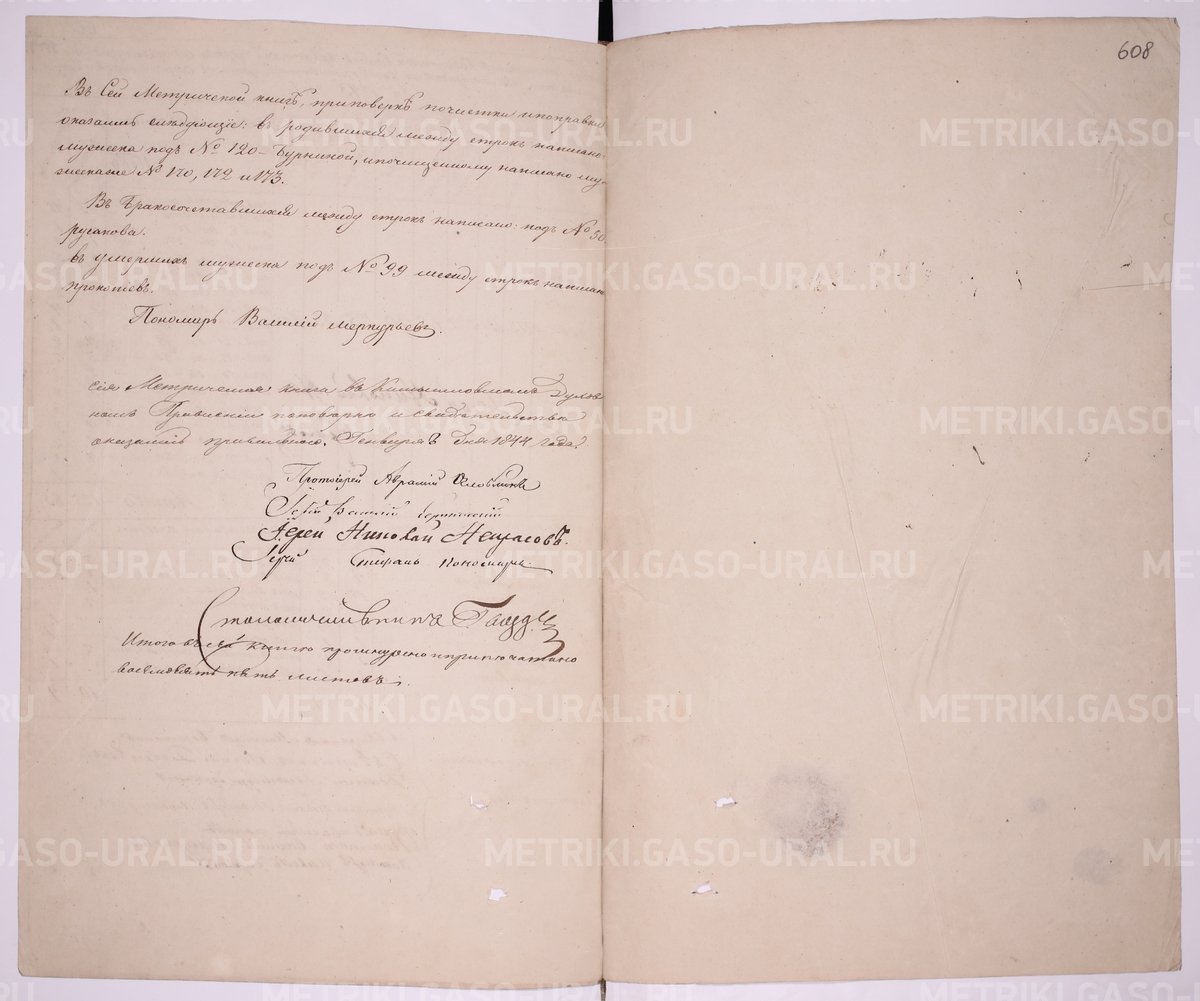 608
Въ Сей Метрической книгѣ, приповеркѣ почистки ипоправки
оказались слѣдующіе: въ родившихся между строкъ написано:
мужеска подъ № 120 – Буркиной, ипочищенному написано му-
жескаже № 170, 172 и 173.
Въ Бракосочетавшихся между строкъ написано: подъ № 50
русакова.
въ умершихъ мужеска подъ № 99 между строкъ написан
прокопьев.
Пономарь Василій Меркурьевъ.
сія Метрическая книга въ Камышловскомъ Духов
номъ Правленіи поповерки и свидѣтельству
оказалась правильною. Генваря дня 1844 года.
Протоіерей Авраамій
Іерей Василій
Іерей Николай Некрасовъ.
Іерей Стефанъ Пономаревъ
Столоначальникъ
Итого въ сей книгѣ прошнуровано иприпечатано
пять листовъ.
METRIKI.GASO-URAL.RU